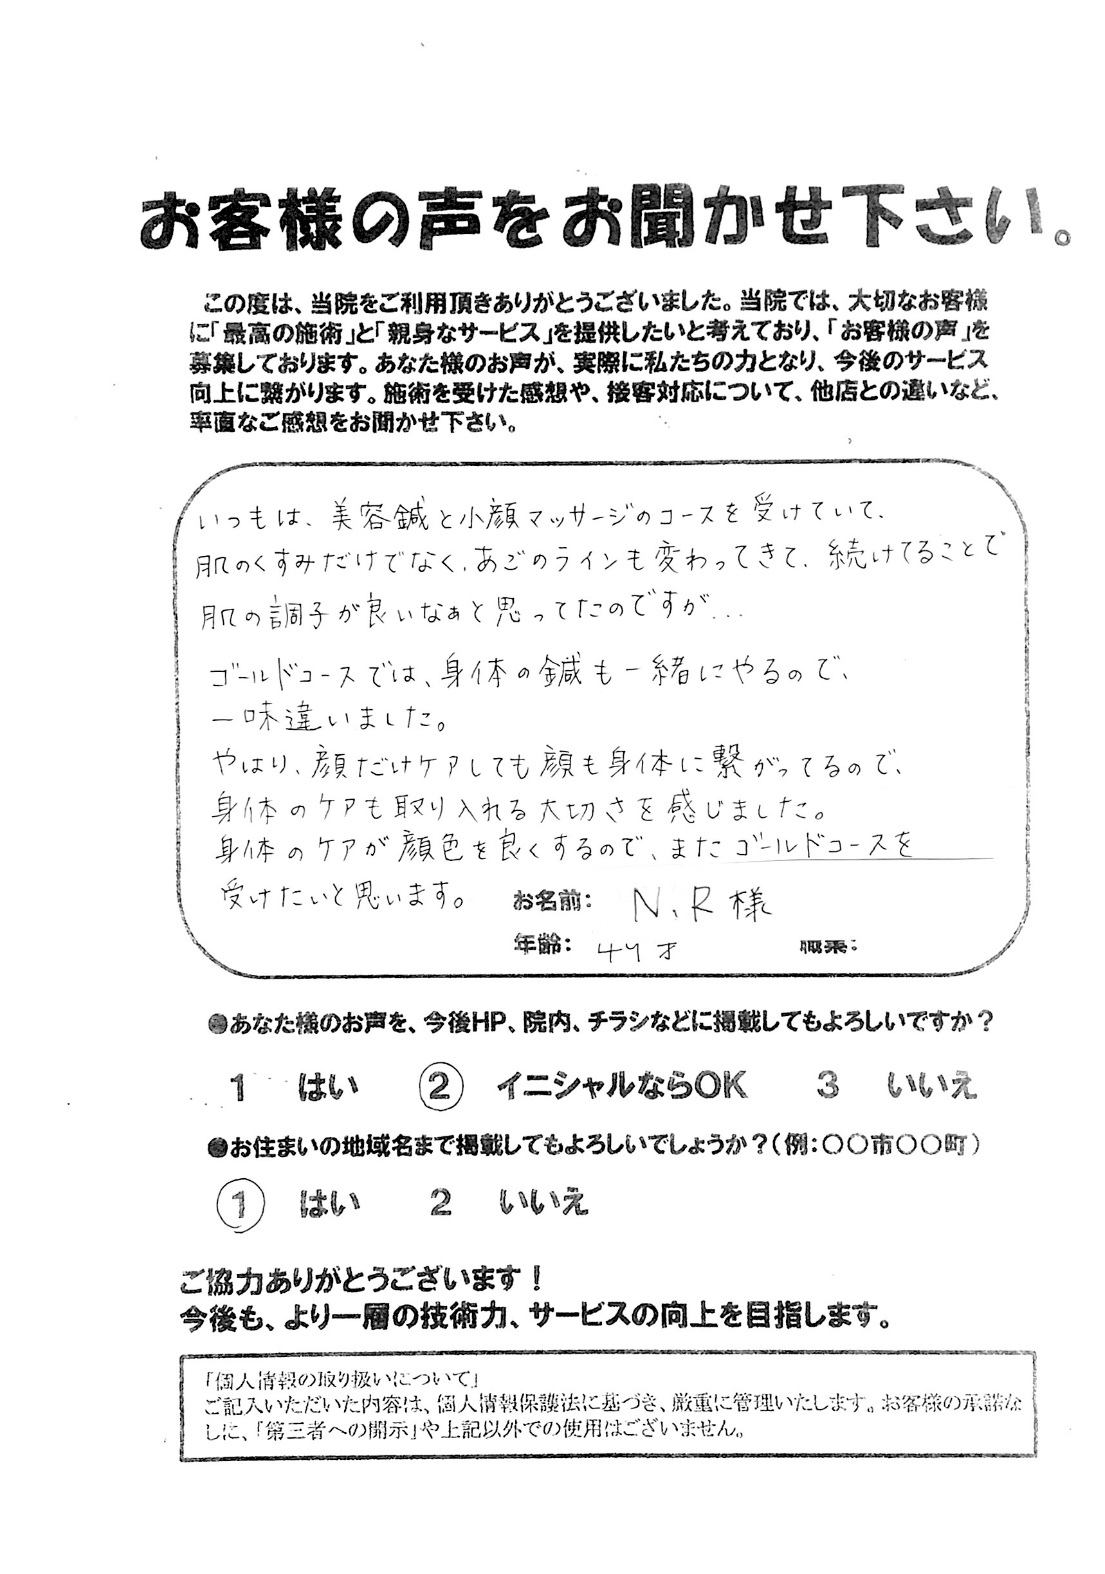 お客様の声をお聞かせ下さい。
この度は、当院をご利用頂きありがとうございました。当院では、大切なお客様
に「最高の施術」と「親身なサービス」を提供したいと考えており、「お客様の声」を
募集しております。あなた様のお声が、実際に私たちの力となり、今後のサービス
向上に繋がります。施術を受けた感想や、接客対応について、他店との違いなど、
率直なご感想をお聞かせ下さい。
いつもは、美容鍼と小顔マッサージのコースを受けていて、
肌のくすみだけでなく、あごのラインも変わってきて、続けてることで
肌の調子が良いなぁと思ってたのですが...
ゴールドコースでは、身体の鍼も一緒にやるので、
一味違いました。
やはり、顔だけケアしても顔も身体に繋がってるので、
身体のケアも取り入れる大切さを感じました。
身体のケアが顔色を良くするので、またゴールドコースを
受けたいと思います。
お名前: N.R様
年齢: 47才 職業:
●あなた様のお声を、今後HP、院内、チラシなどに掲載してもよろしいですか?
1 はい 2 イニシャルならOK 3 いいえ
●お住まいの地域名まで掲載してもよろしいでしょうか?(例:○○市○○町)
1 はい 2 いいえ
ご協力ありがとうございます!
今後も、より一層の技術力、サービスの向上を目指します。
「個人情報の取り扱いについて」
ご記入いただいた内容は、個人情報保護法に基づき、厳重に管理いたします。お客様の承諾な
しに、「第三者への開示」や上記以外での使用はございません。